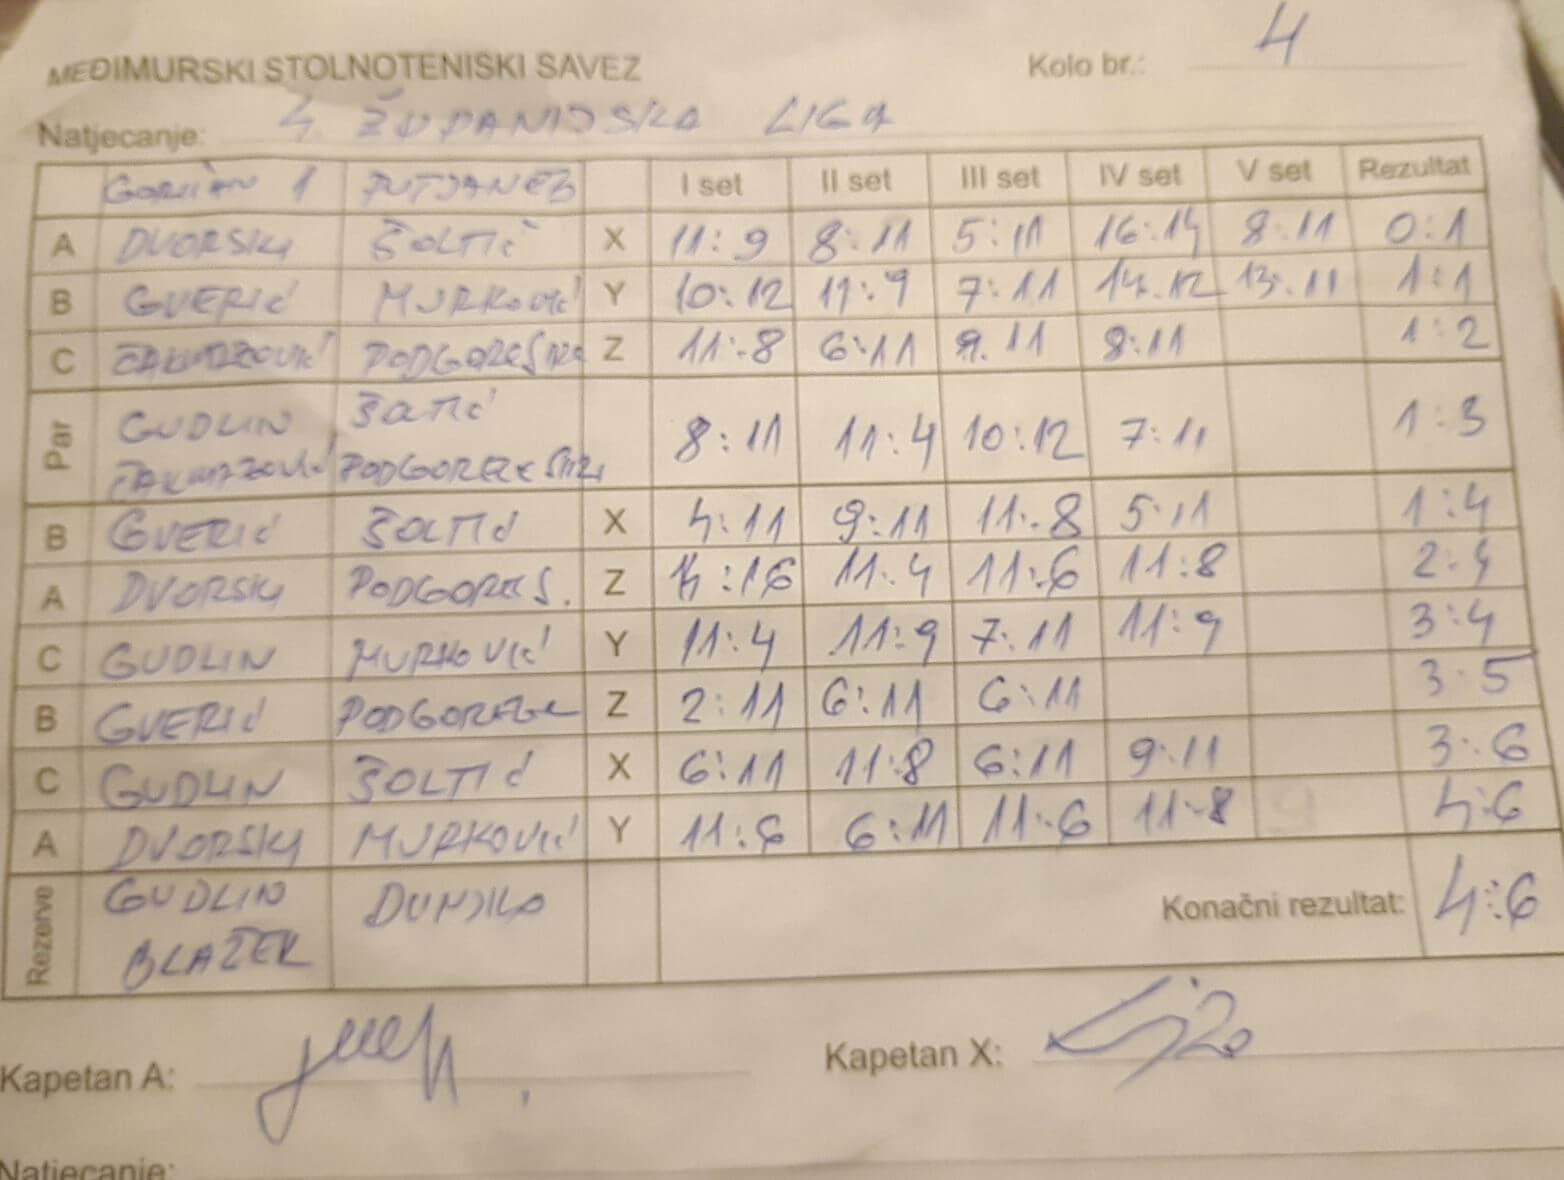 MEĐIMURSKI STOLNOTENISKI SAVEZ Kolo br.: 4
Natjecanje: 4. ŽUPANIJSKA LIGA
GORIČAN 1 I set II set III set IV set V set Rezultat
A DVORSKY ŠOLTIĆ X 11:9 8:11 5:11 16:14 8:11 0:1
B GVERIĆ MURKOVIĆ Y 10:12 11:9 7:11 14:12 13:11 1:1
C Z 11:8 6:11 9:11 8:11 1:2
Par GUDLIN ŠOLTIĆ 8:11 11:4 10:12 7:11 1:3
B GVERIĆ ŠOLTIĆ X 4:11 9:11 11:8 5:11 1:4
A DVORSKY PODGOREL S. Z :16 11:4 11:6 11:8 2:4
C GUDLIN MURKOVIĆ Y 11:4 11:9 7:11 11:9 3:4
B GVERIĆ Z 2:11 6:11 6:11 3:5
C GUDLIN ŠOLTIĆ X 6:11 11:8 6:11 9:11 3:6
A DVORSKY MURKOVIĆ Y 11:6 6:11 11:6 11:8 4:6
Rezerve GUDLIN Konačni rezultat: 4:6
BLAŽEK
Kapetan A: Kapetan X:
Natjecanje: